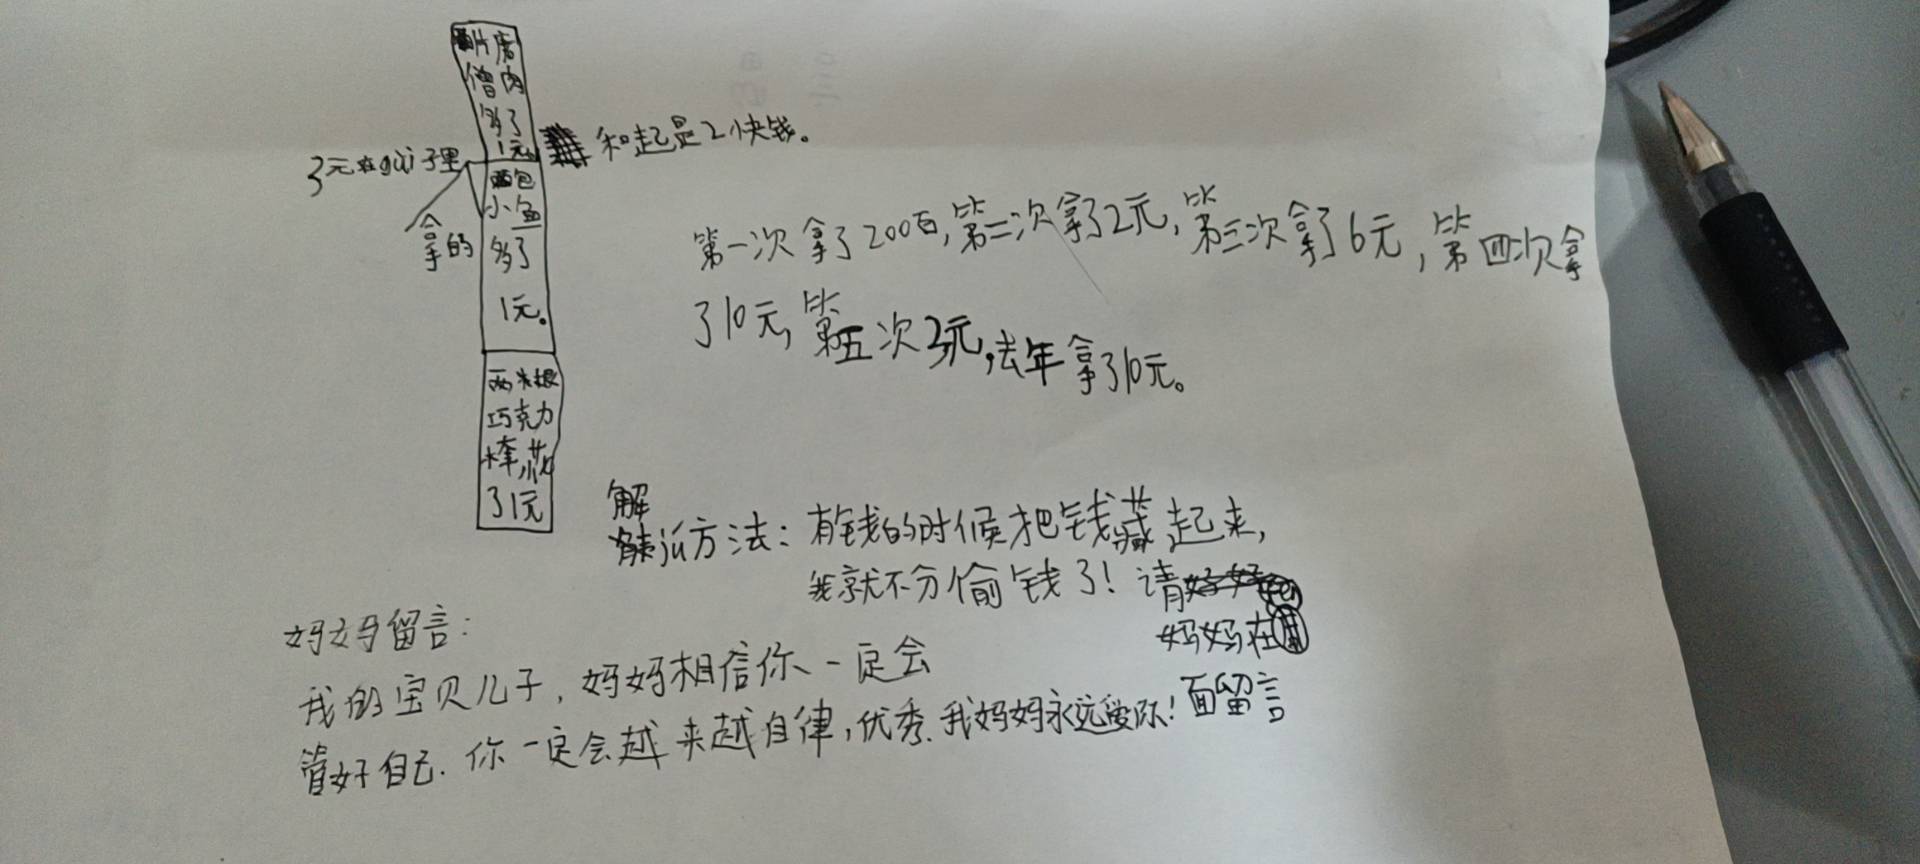 片唐
僧肉
多了
1元。
和起是2快钱。
3元在guì子里
拿的
包
小鱼
多了
1元。
两根
巧克力
棒花
了1元
第一次拿了200百,第二次拿了2元,第三次拿了6元,第四次拿
了10元,第五次3元,去年拿了10元。
解
jué方法:有钱的时候把钱藏起来,
我就不分偷钱了!请
妈妈在
面留言
妈妈留言:
我的宝贝儿子,妈妈相信你一定会
管好自己.你一定会越来越自律,优秀.我妈妈永远爱你!